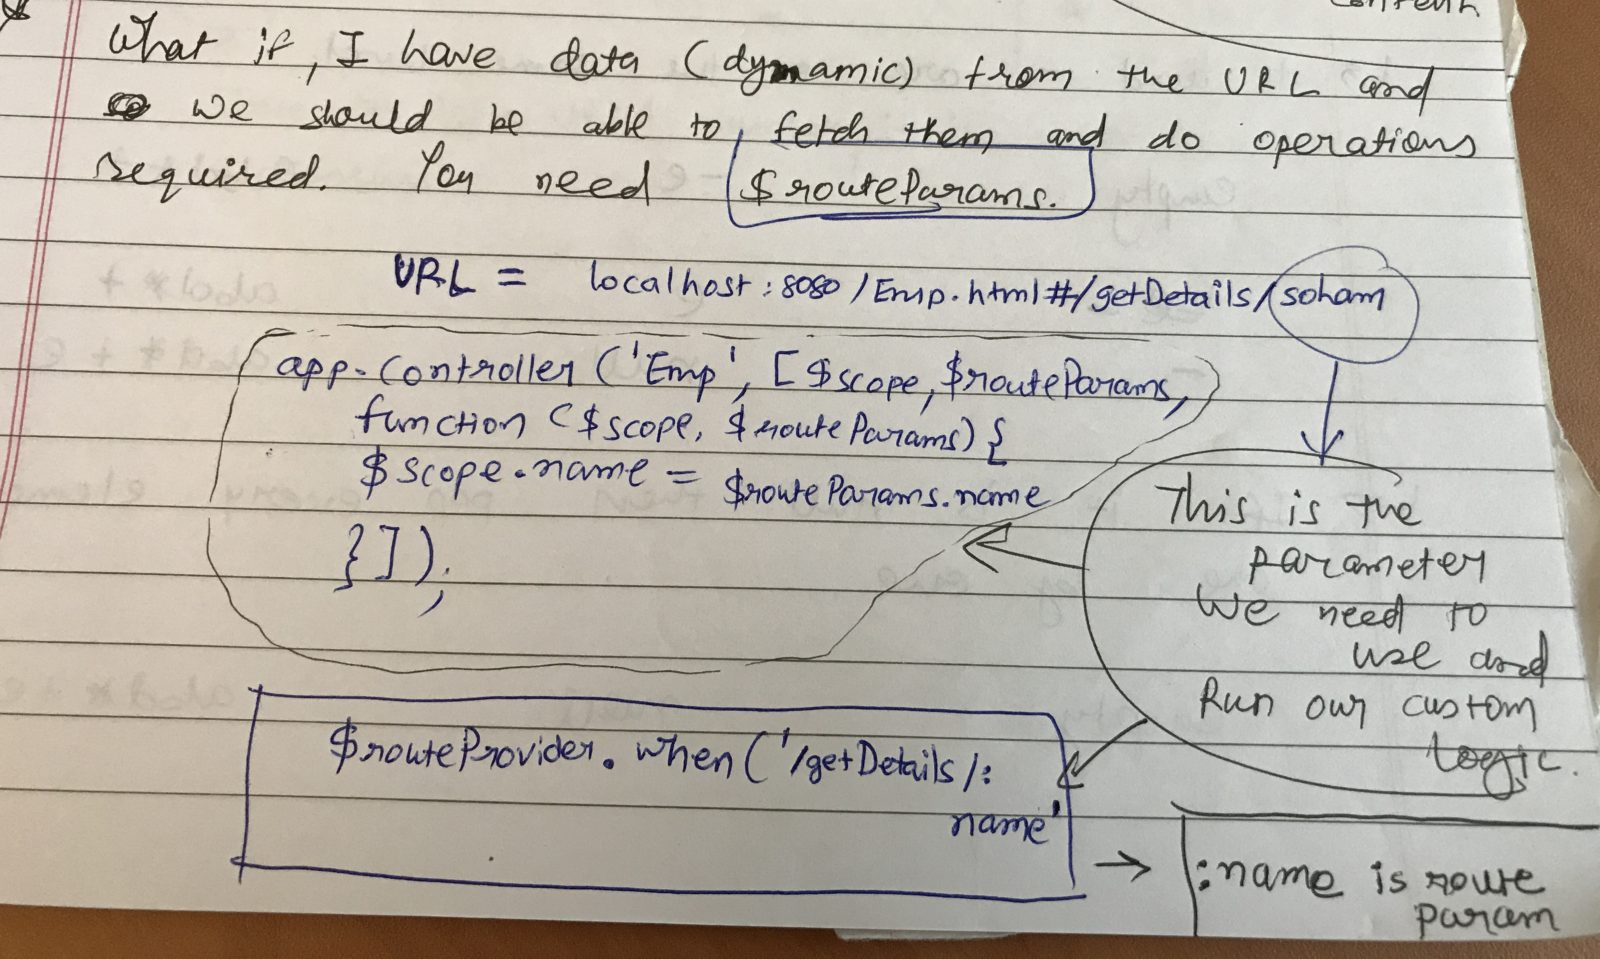 What if, I have data (dynamic) from the URL and
we should be able to fetch them and do operations
required. You need $routeParams.
URL = localhost:8080/Emp.html#/getDetails/soham
app.controller('Emp', [$scope, $routeParams,
function ($scope, $routeParams) {
$scope.name = $routeParams.name
}]);
This is the
parameter
We need to
use and
Run our custom
logic.
$routeProvider.when('/getDetails/:
name'
→ :name is route
param